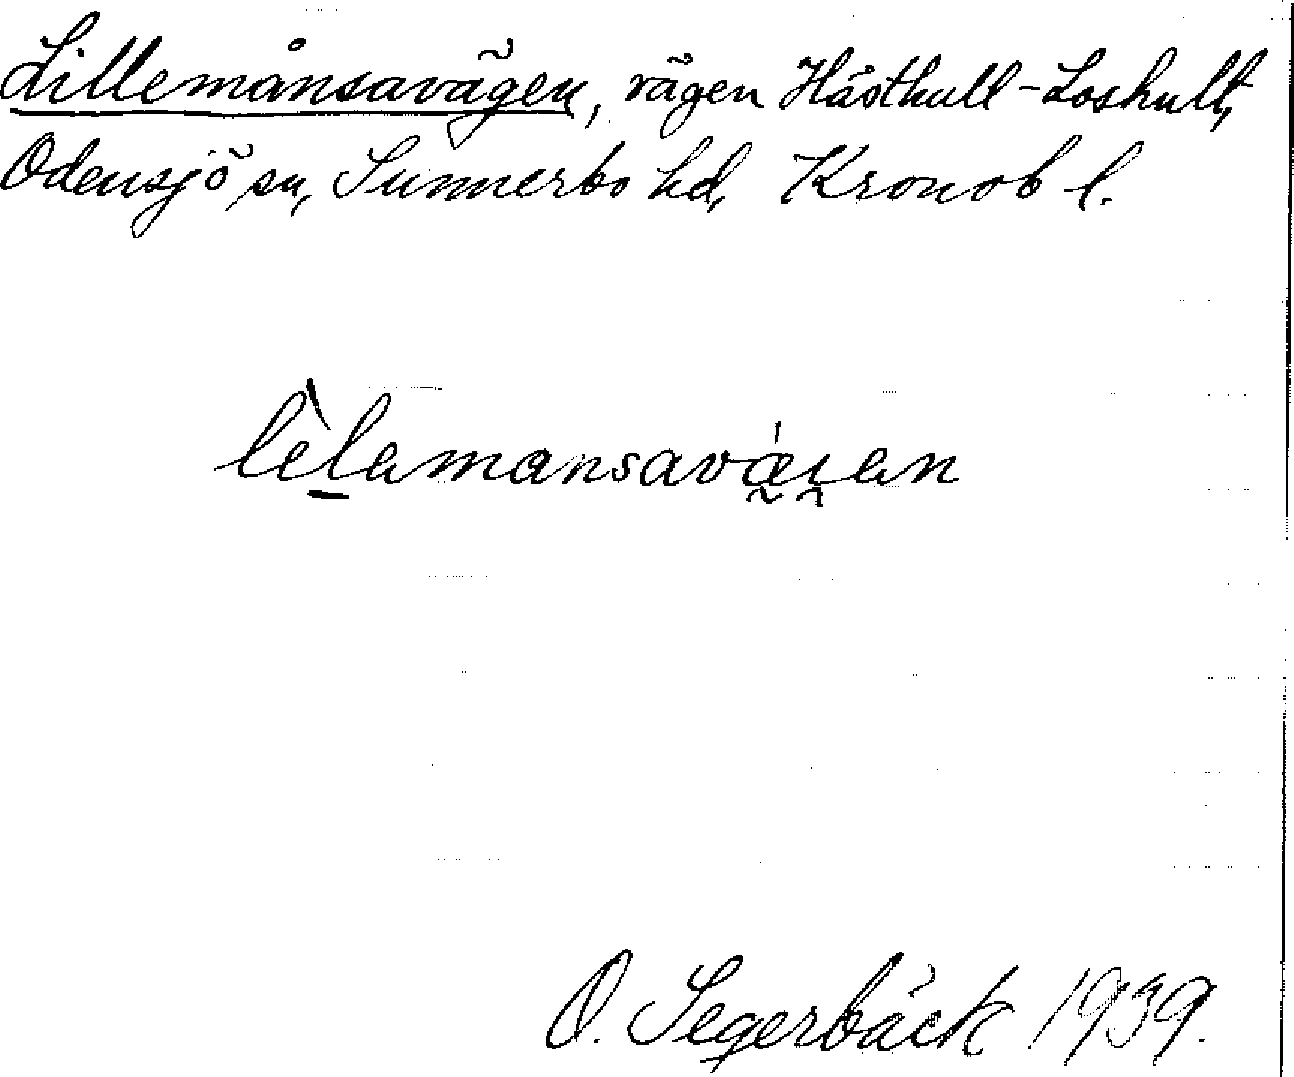 Lillemånsavägen, vägen Hästhull-Loshult,
Odensjö sn, Sunnerbo hd, Kronob l.
lèlamansavæ̰ɪ̯an
O. Segerbäck 1939.